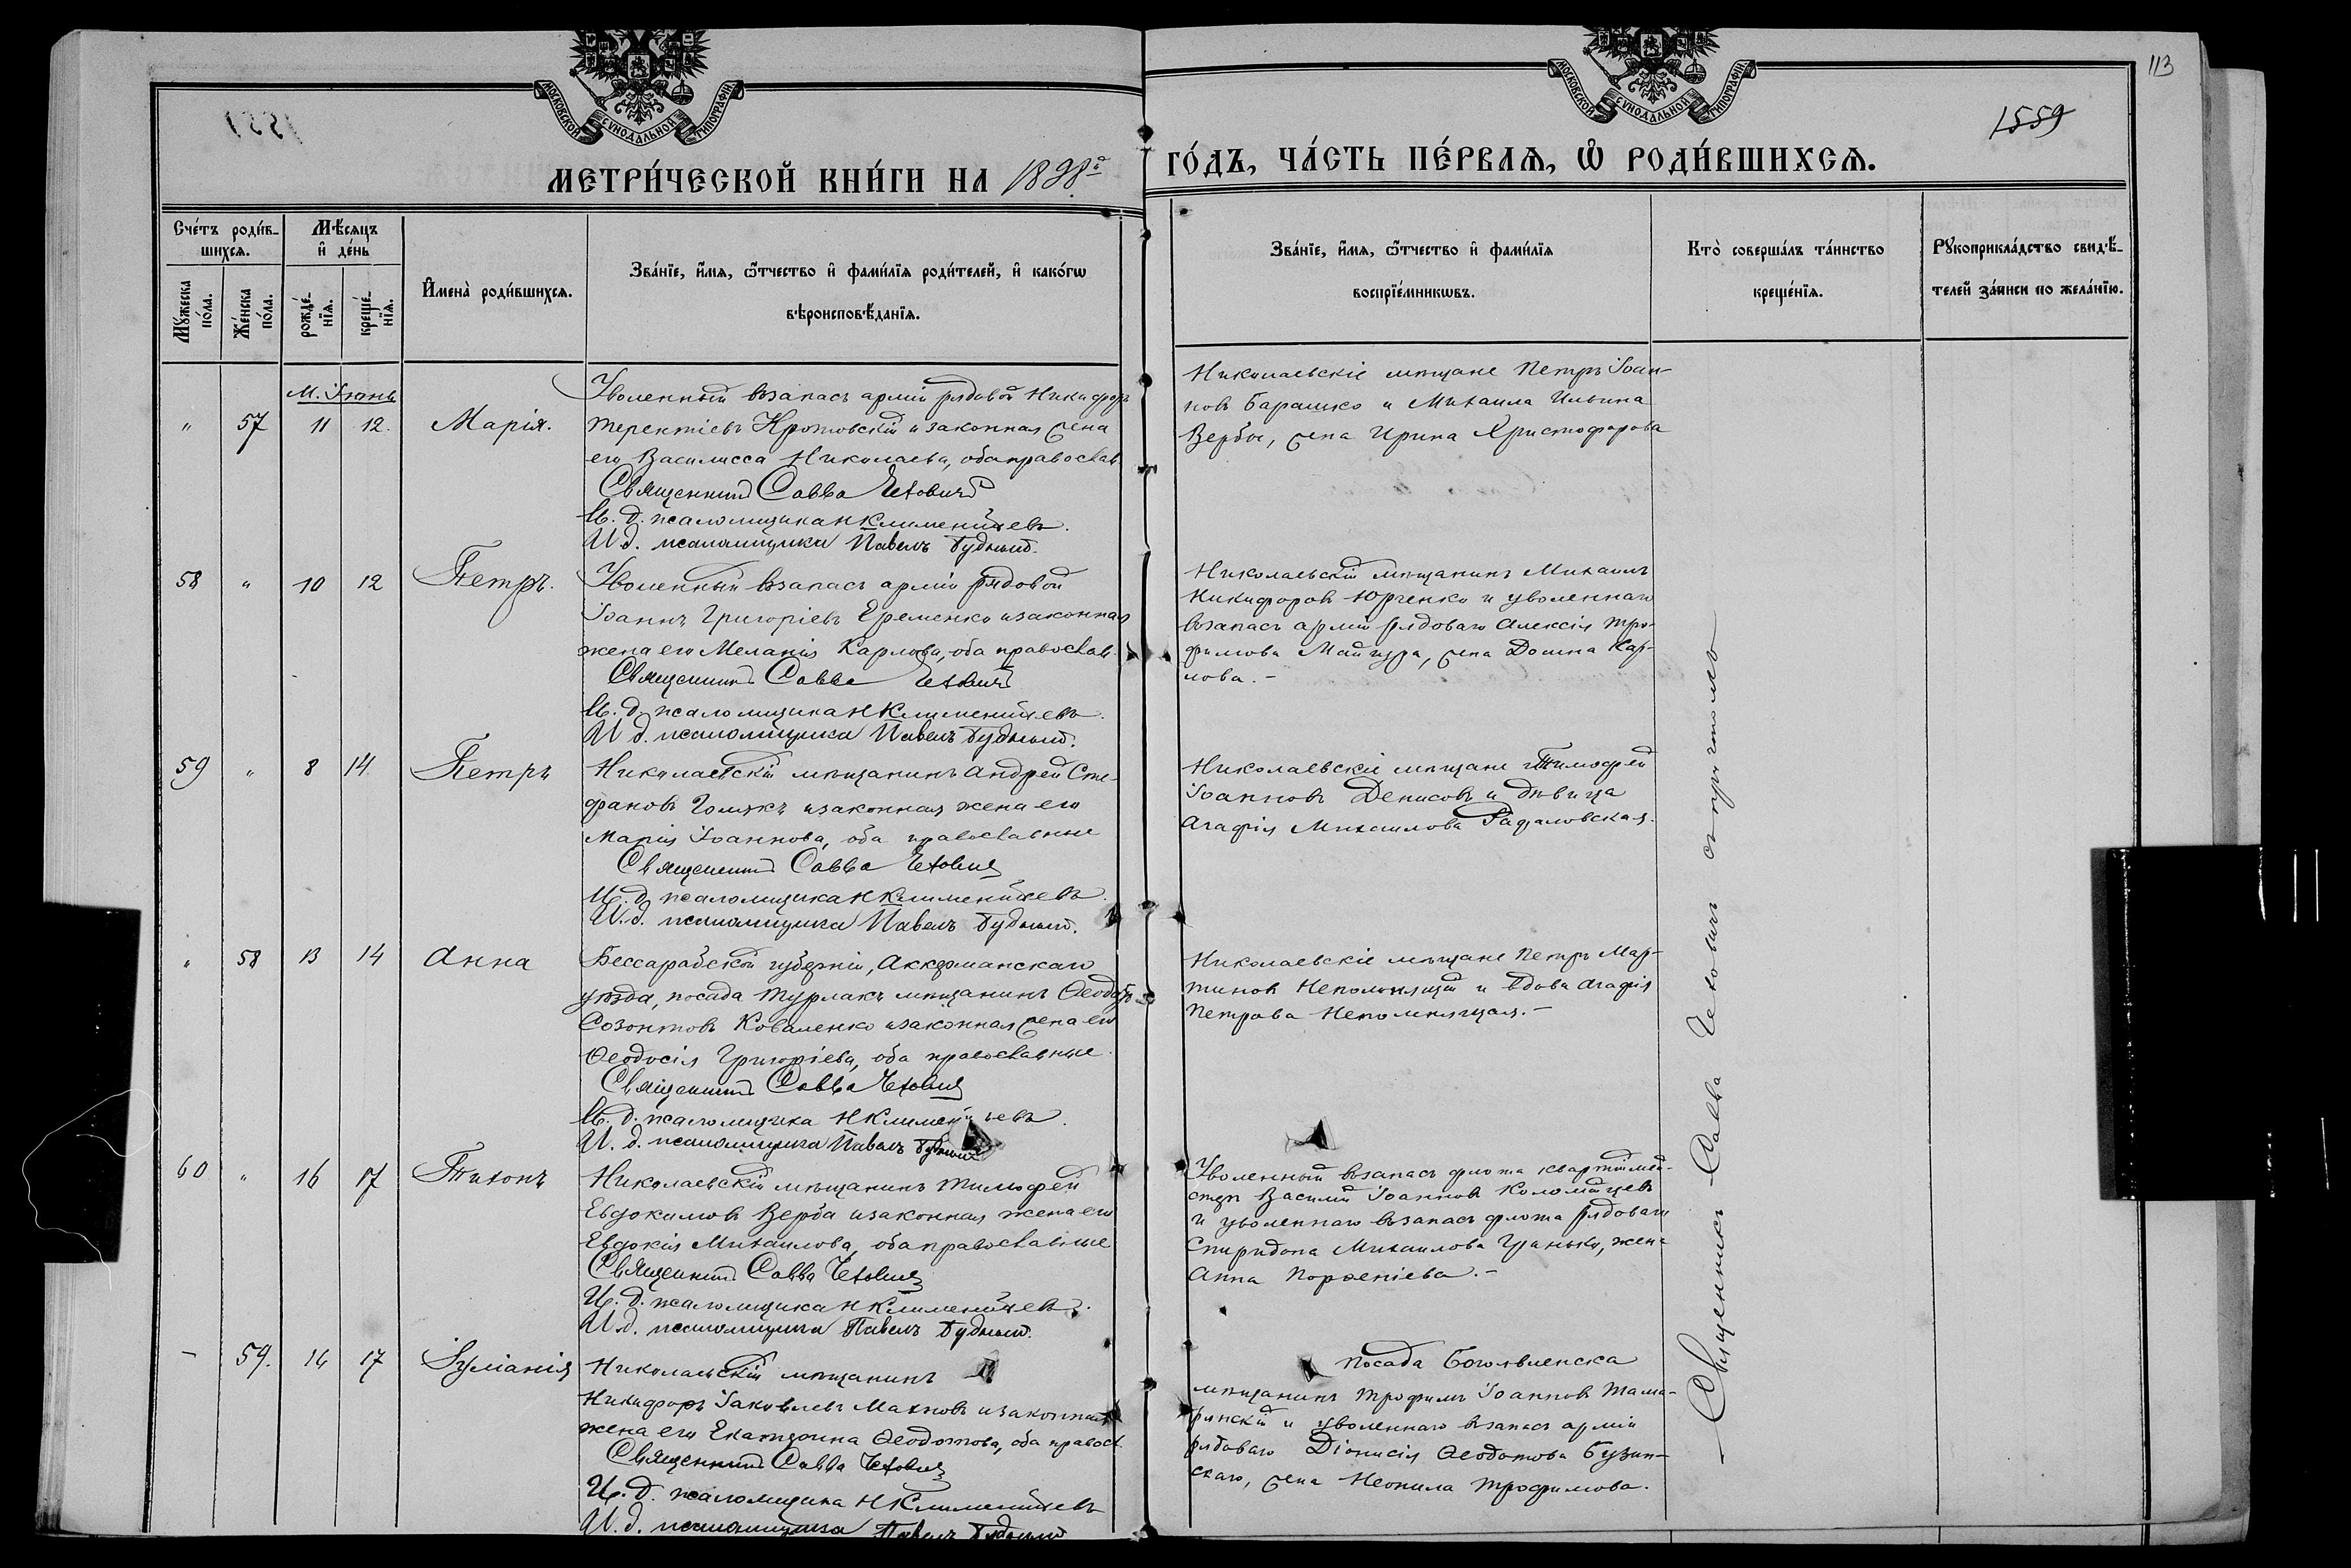 113
1559
МОСКОВСКОЙ СУНОДАЛЬНОЙ ТИПОГРАФІИ
МОСКОВСКОЙ СУНОДАЛЬНОЙ ТИПОГРАФІИ
МЕТРИ́ЧЕСКОЙ КНИ́ГИ НА 1898й ГО́ДЪ, ЧА́СТЬ ПЕ́РВАЯ, Ѿ РОДИ́ВШИХСЯ.
Сче́тъ роди́в-
шихся.
Мꙋ́жеска по́ла.
Же́нска по́ла.
Мѣ́сяцъ
и҆ де́нь
рожде́-
нїя.
креще́-
нїя.
И҆мена̀ роди́вшихся.
Зва́нїе, и҆́мя, ѻ҆́тчество и҆ фами́лїя роди́телей, и҆ како́гѡ
вѣроисповѣ́данїя.
Зва́нїе, и҆́мя, ѻ҆́тчество и҆ фами́лїя
воспрїе́мникѡвъ.
Кто̀ соверша́лъ та́инство
креще́нїя.
Рꙋкоприкла́дство свидѣ́-
телей за́писи по жела́нїю.
М. Іюнь
" 57 11 12. Марія.
Уволенный взапасъ арміи рядовой Никифоръ
Терентіевъ Кротовскій и законная жена
его Василисса Николаева, оба православ.
Священникъ Савва Чехович
И. д. псаломщика Н Климентьевъ.
И. д. псаломщика Павелъ Будный.
Николаевскіе мѣщане Петръ Іоан-
новъ Барашко и Михаила Ильина
Вербы, жена Ирина Христофорова
58 " 10 12 Петръ.
Уволенный взапасъ арміи рядовой
Іоаннъ Григоріевъ Еременко и законная
жена его Меланія Карлова, оба православ.
Священникъ Савва Чехович
И. д. псаломщика Н Климентьевъ.
И. д. псаломщика Павелъ Будный.
Николаевскій мѣщанинъ Михаилъ
Никифоровъ Юрченко и уволеннаго
взапасъ арміи рядоваго Алексія Тро-
фимова жена Домна Кар-
лова. -
59 " 8 14 Петръ
Николаевскій мѣщанинъ Андрей Сте-
фановъ и законная жена его
Марія Іоаннова, оба православные
Священникъ Савва Чехович
И. д. псаломщика Н Климентьевъ.
И. д. псаломщика Павелъ Будный.
Николаевскіе мѣщане Тимофей
Іоанновъ Денисовъ и дѣвица
Агафія Михаилова
" 58 13 14 Анна
Бессарабской губерніи, Аккерманскаго
уѣзда, посада Турлакъ мѣщанинъ
Созонтовъ Коваленко и законная жена его
Ѳеодосія Григоріева, оба православные.
Священникъ Савва Чехович
И. д. псаломщика Н Климентьевъ.
И. д. псаломщика Павелъ Будный
Николаевскіе мѣщане Петръ Мар-
тиновъ Непомнящій и вдова Агафія
Петрова Непомнящая. -
60 " 16 17 Тихонъ
Николаевскій мѣщанинъ Тимофей
Евдокимовъ Верба и законная жена его
Евдокія Михаилова, оба православные
Священникъ Савва Чехович
И. д. псаломщика Н Климентьевъ.
И. д. псаломщика Павелъ Будный.
Уволенный взапасъ флота квартирмей-
стеръ Василій Іоанновъ Коломійцевъ
и уволеннаго взапасъ флота рядоваго
Спиридона Михаилова жена
Анна
- 59. 16 17 Іуліанія
Николаевскій мѣщанинъ
Никифоръ Іаковлевъ Махновъ и законная
жена его Екатерина Ѳеодотова, оба правосл.
Священникъ Савва Чехович
И. д. псаломщика Н Климентьевъ
И. д. псаломщика Павелъ Будный
посада Богоявленска
мѣщанинъ Трофимъ Іоанновъ Тама-
ринскій и уволеннаго взапасъ арміи
рядоваго Діонисія Ѳеодотова Бузин-
скаго, жена Неонила Трофимова.
Священникъ Савва Чеховичъ съ причтомъ